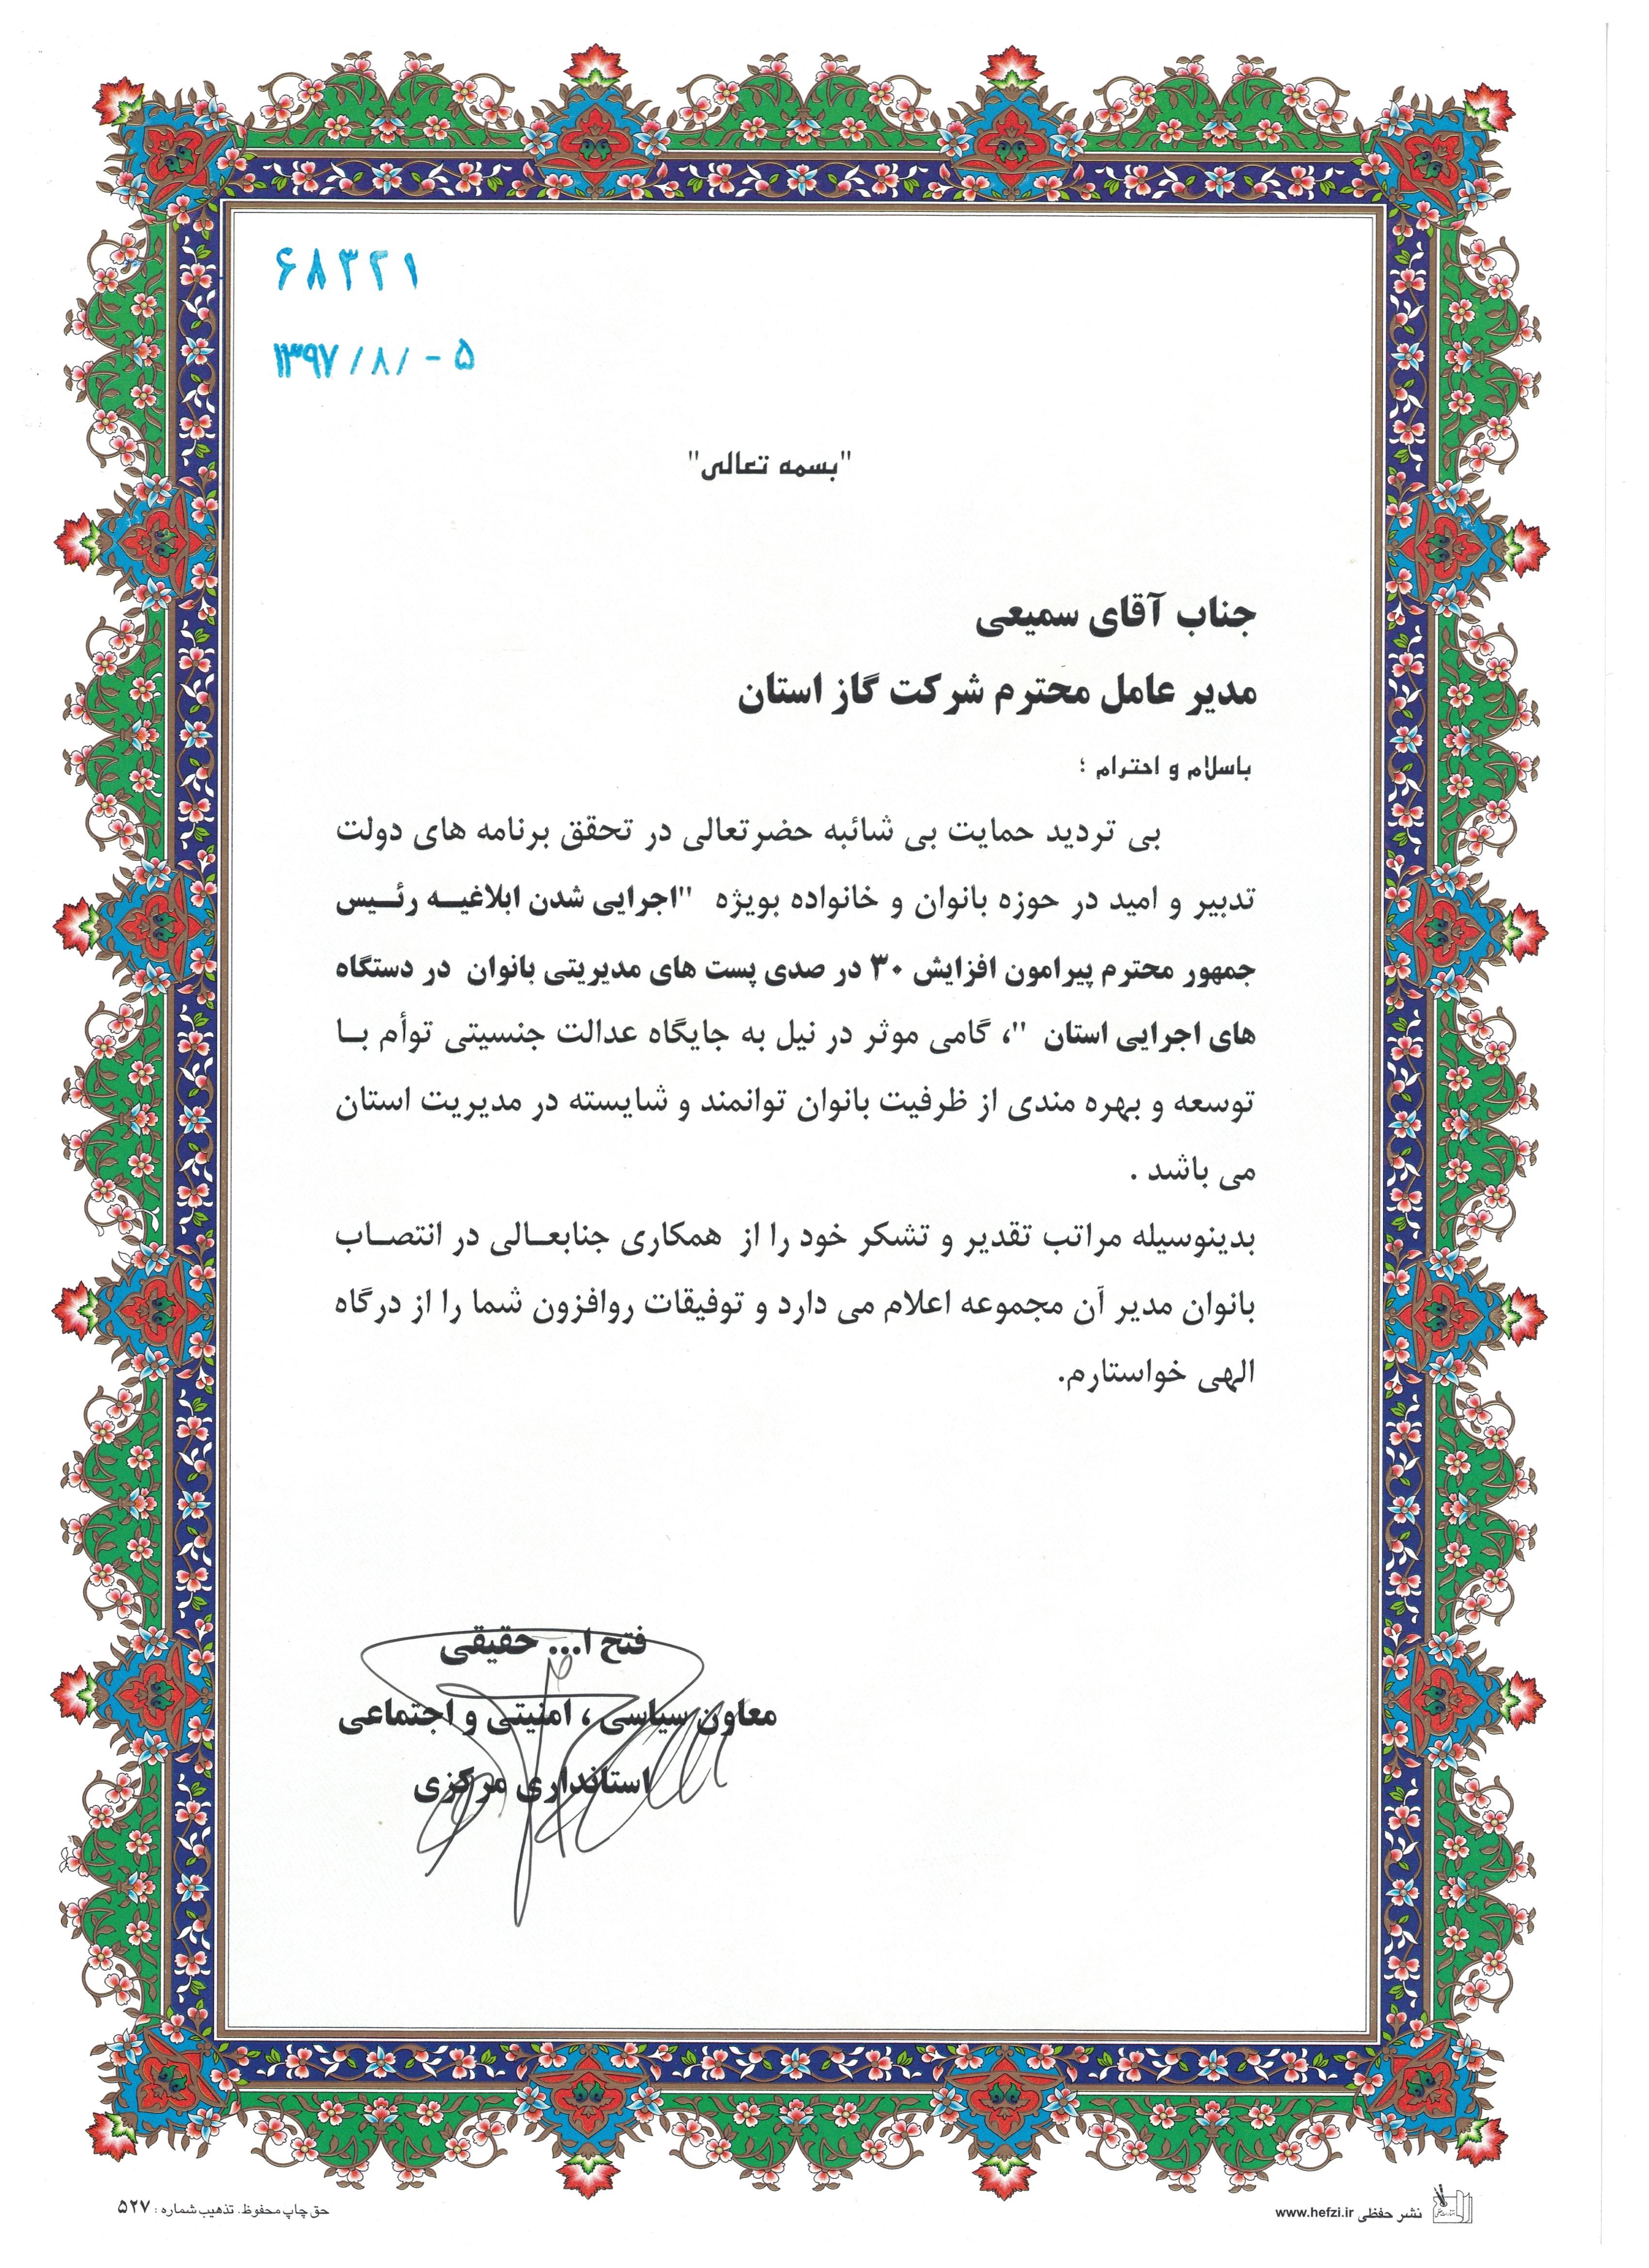 ۶۸۳۲۱
۱۳۹۷/۸/-۵
"بسمه تعالی"
جناب آقای سمیعی
مدیر عامل محترم شرکت گاز استان
باسلام و احترام ؛
بی تردید حمایت بی شائبه حضرتعالی در تحقق برنامه های دولت
تدبیر و امید در حوزه بانوان و خانواده بویژه "اجرایی شدن ابلاغیه رئیس
جمهور محترم پیرامون افزایش ۳۰ در صدی پست های مدیریتی بانوان در دستگاه
های اجرایی استان "، گامی موثر در نیل به جایگاه عدالت جنسیتی توأم با
توسعه و بهره مندی از ظرفیت بانوان توانمند و شایسته در مدیریت استان
می باشد .
بدینوسیله مراتب تقدیر و تشکر خود را از همکاری جنابعالی در انتصاب
بانوان مدیر آن مجموعه اعلام می دارد و توفیقات روافزون شما را از درگاه
الهی خواستارم.
فتح ا... حقیقی
معاون سیاسی ، امنیتی و اجتماعی
استانداری مرکزی
نشر حفظی www.hefzi.ir
حق چاپ محفوظ. تذهیب شماره : ۵۲۷